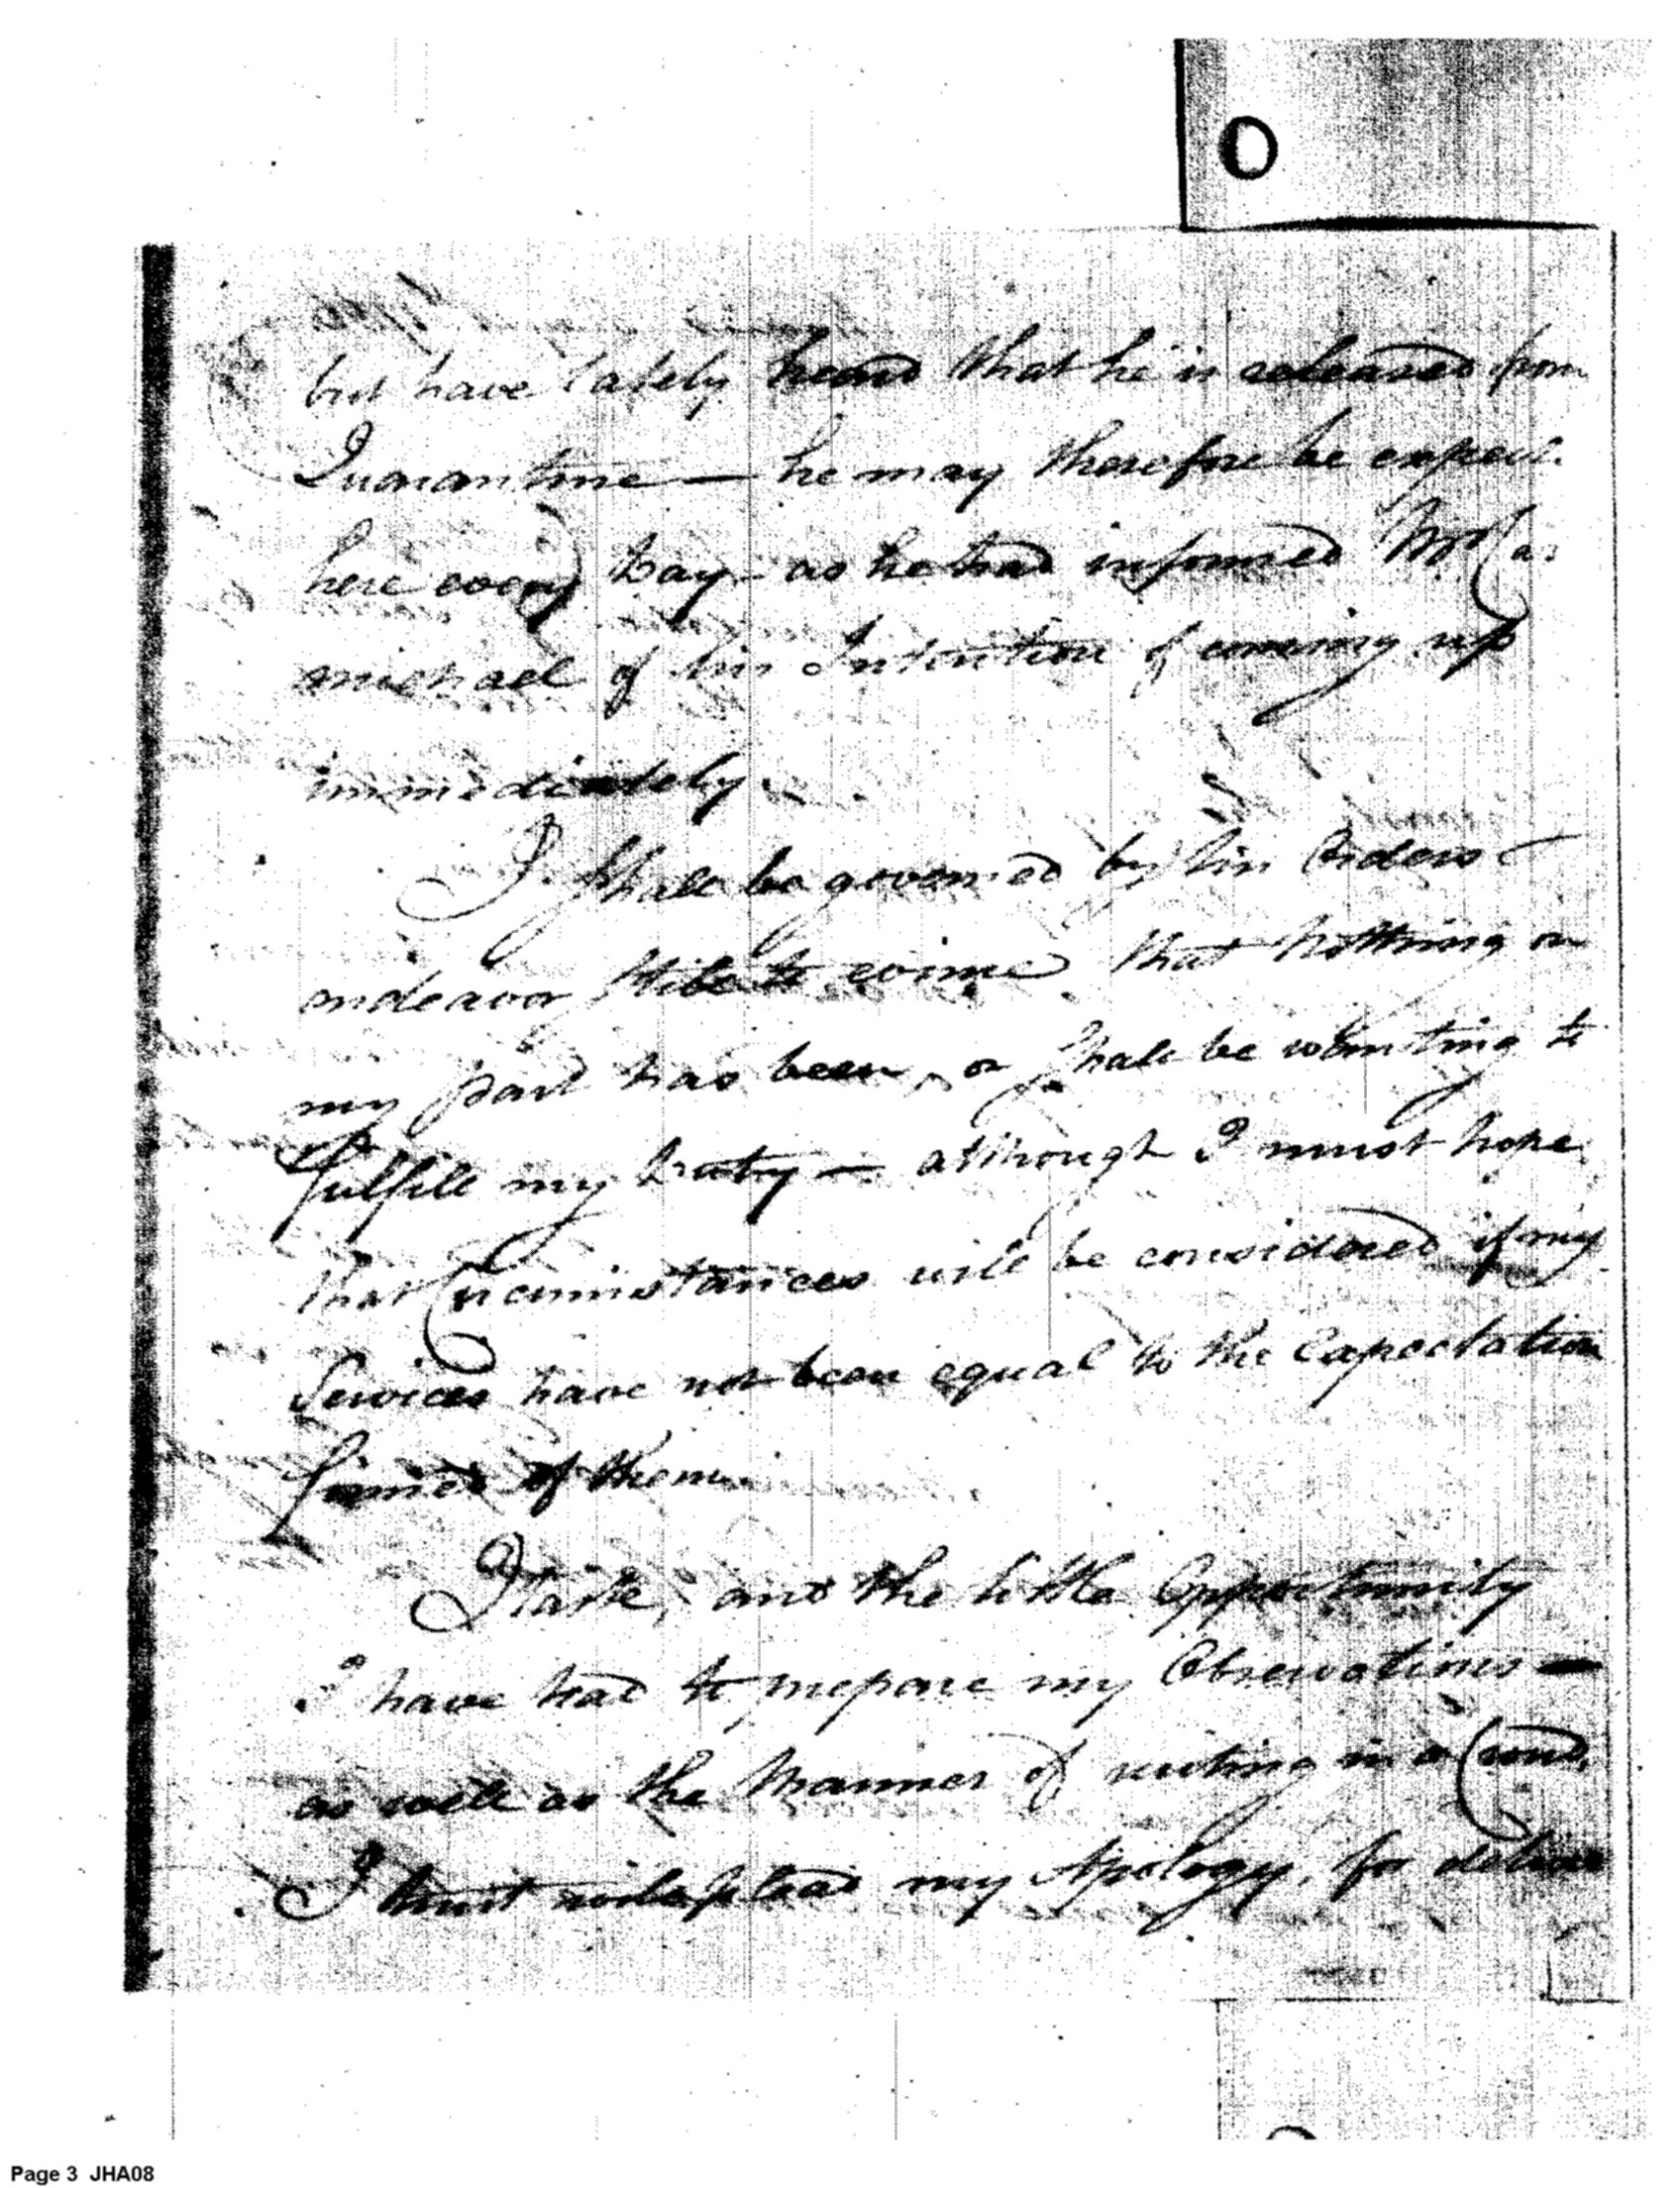 O
but have lately heard that he is released from
Quarantine — he may therefore be expect.
here every Day — as he had informed Mr Car
michael of his Intention of coming up
immediately.
I shall be governed by his Orders —
endeavor still to evince that nothing on
my part has been, or shall be wanting to
fulfill my Duty — although I must hope
that Circumstances will be considered if my
Services have not been equal to the Expectation
formed of them.
Haste, and the little Opportunity
I have had to prepare my Observations —
as well as the Manner of writing in a
I trust will plead my Apology, for
Page 3 JHA08